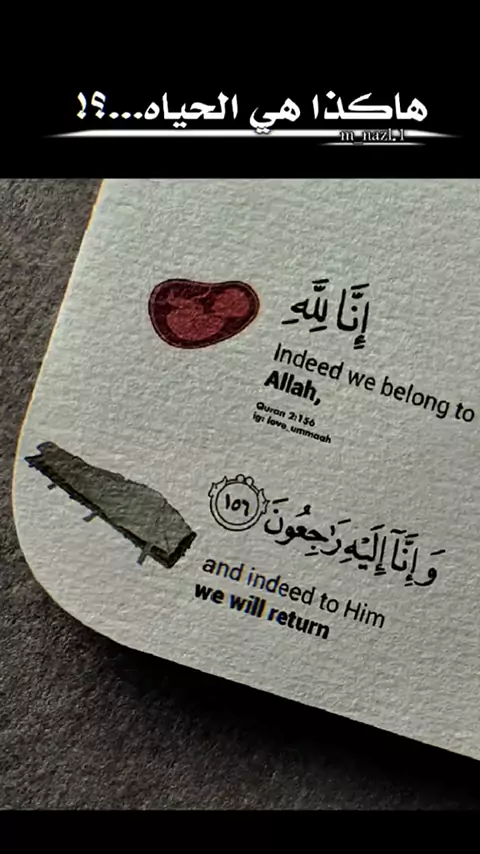 هاكذا هي الحياه...؟!
m_nazl.1
إِنَّا لِلَّهِ
Indeed we belong to
Allah,
Quran 2:156
ig: love_ummaah
وَإِنَّآ إِلَيْهِ رَٰجِعُونَ ١٥٦
and indeed to Him
we will return